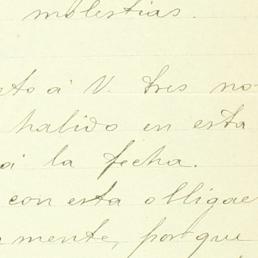 molestias.
eto á V. tres no
halido en esta
á la fecha.
con esta obligac
mente, porque